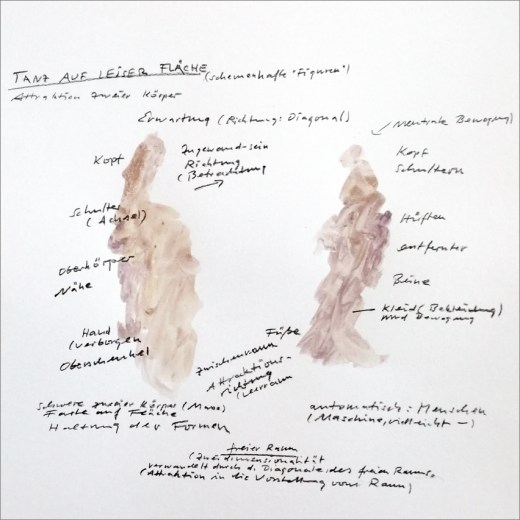 TANZ AUF LEISER FLÄCHE (schemenhafte "Figuren")
Attraktion zweier Körper
Erwartung (Richtung: Diagonal)
Neutrale Bewegung)
Kopf
Zugewand-sein
Richtung
(Betrachtung
Schulter
(Achsel)
Oberkörper
Nähe
Hand
(verborgen
Oberschenkel
Kopf
Schultern
Hüften
entfernter
Beine
Kleid (Bekleidung)
und Bewegung
Füße
Zwischenraum
Attraktions-
richtung
(Leerraum
Schwere zweier Körper (Masse)
Farbe auf Fläche
Haltung der Formen
automatisch: Menschen
(Maschine, vielleicht -)
freier Raum
(Zweidimensionalität
verwandelt durch d. Diagonale des freien Raums.
(Attraktion in die Vorstellung vom Raum)